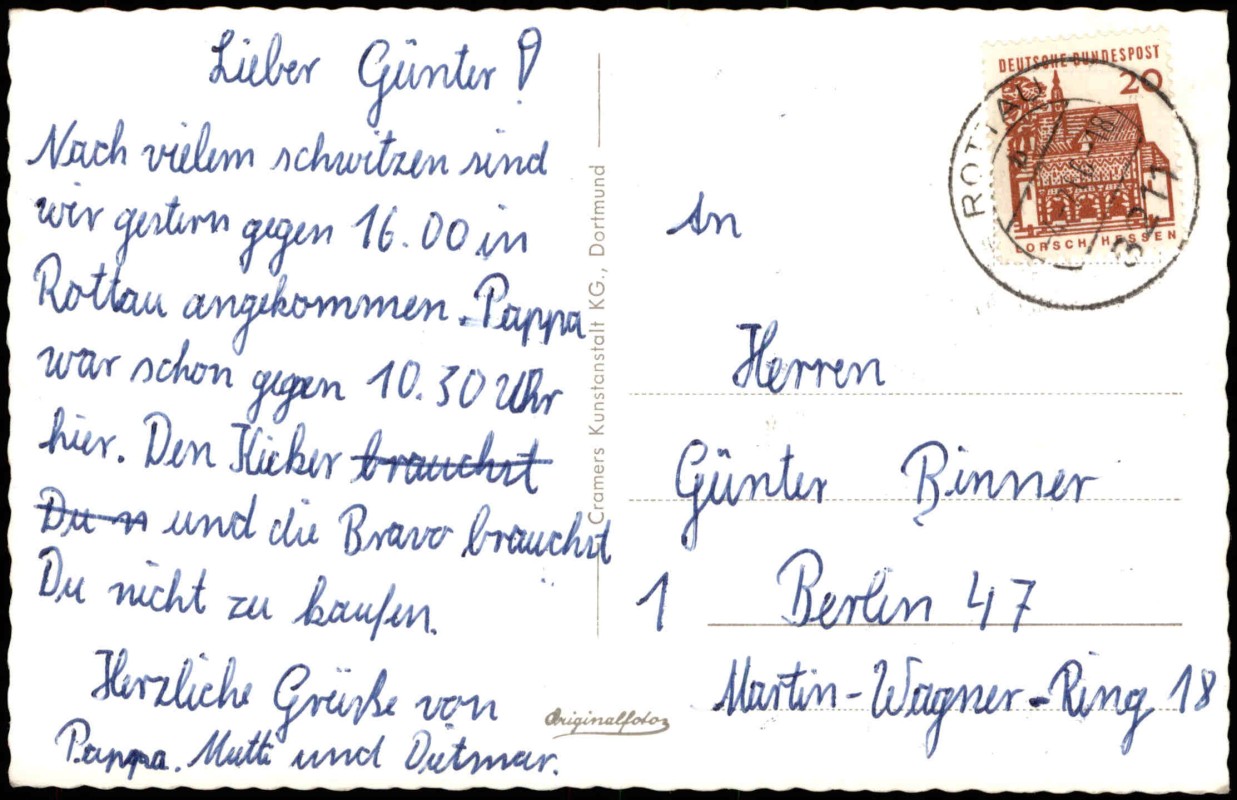 Lieber Günter!
Nach vielem schwitzen sind
wir gestern gegen 16.00 in
Rottau angekommen. Pappa
war schon gegen 10.30 Uhr
hier. Den Kicker brauchst
Du n und die Bravo brauchst
Du nicht zu kaufen.
Herzliche Grüße von
Pappa. Mutti und Dietmar.
Cramers Kunstanstalt KG., Dortmund
Originalfoto
DEUTSCHE BUNDESPOST
20
LORSCH HESSEN
ROTTAU
8211
An
Herren
Günter Binner
1 Berlin 47
Martin-Wagner-Ring 18